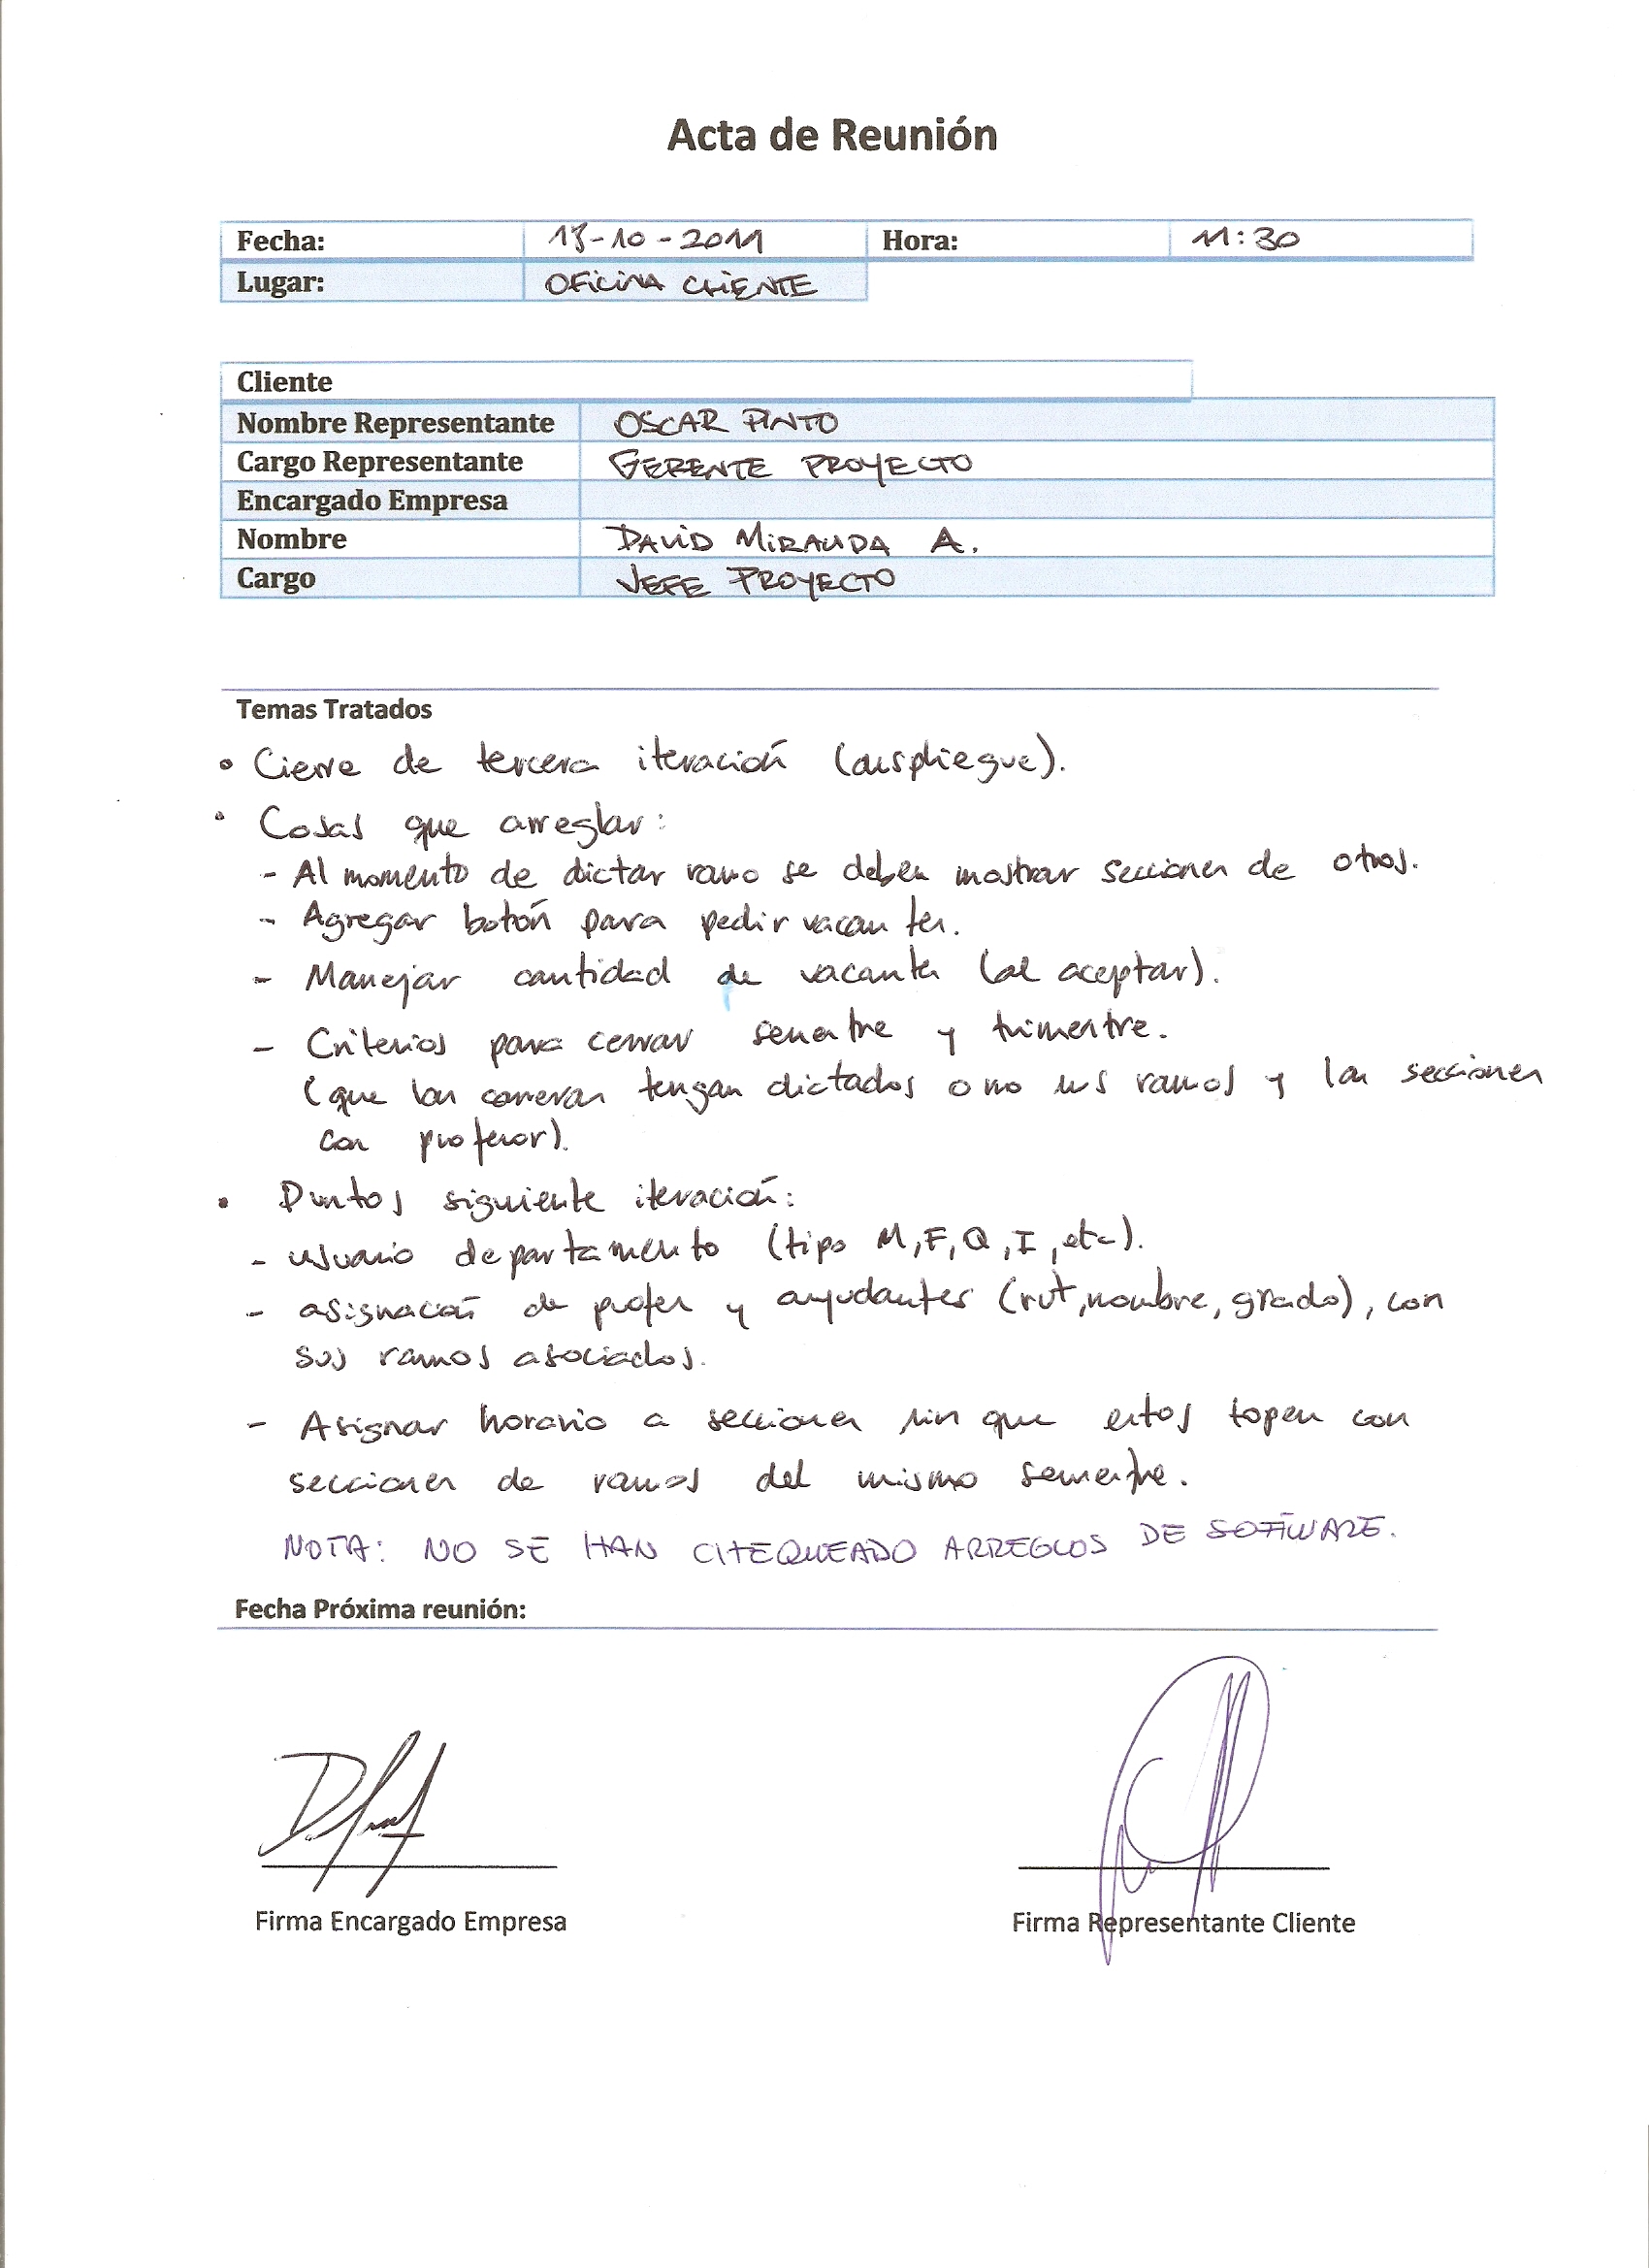 Acta de Reunión
Fecha: 13-10-2011 Hora: 11:30
Lugar: OFICINA CLIENTE
Cliente
Nombre Representante OSCAR PINTO
Cargo Representante GERENTE PROYECTO
Encargado Empresa
Nombre DAVID MIRANDA A.
Cargo JEFE PROYECTO
Temas Tratados
• Cierre de tercera iteración (despliegue).
• Cosas que arreglar:
- Al momento de dictar ramo se deben mostrar secciones de otros.
- Agregar botón para pedir vacantes.
- Manejar cantidad de vacantes (al aceptar).
- Criterios para cerrar semestre y trimestre.
(que las carreras tengan dictados o no sus ramos y las secciones
con profesor).
• Puntos siguiente iteración:
- usuario departamento (tipo M, F, Q, I, etc).
- asignación de profes y ayudantes (rut, nombre, grado), con
sus ramos asociados.
- Asignar horario a secciones sin que estos topen con
secciones de ramos del mismo semestre.
NOTA: NO SE HAN CHEQUEADO ARREGLOS DE SOFTWARE.
Fecha Próxima reunión:
Firma Encargado Empresa Firma Representante Cliente